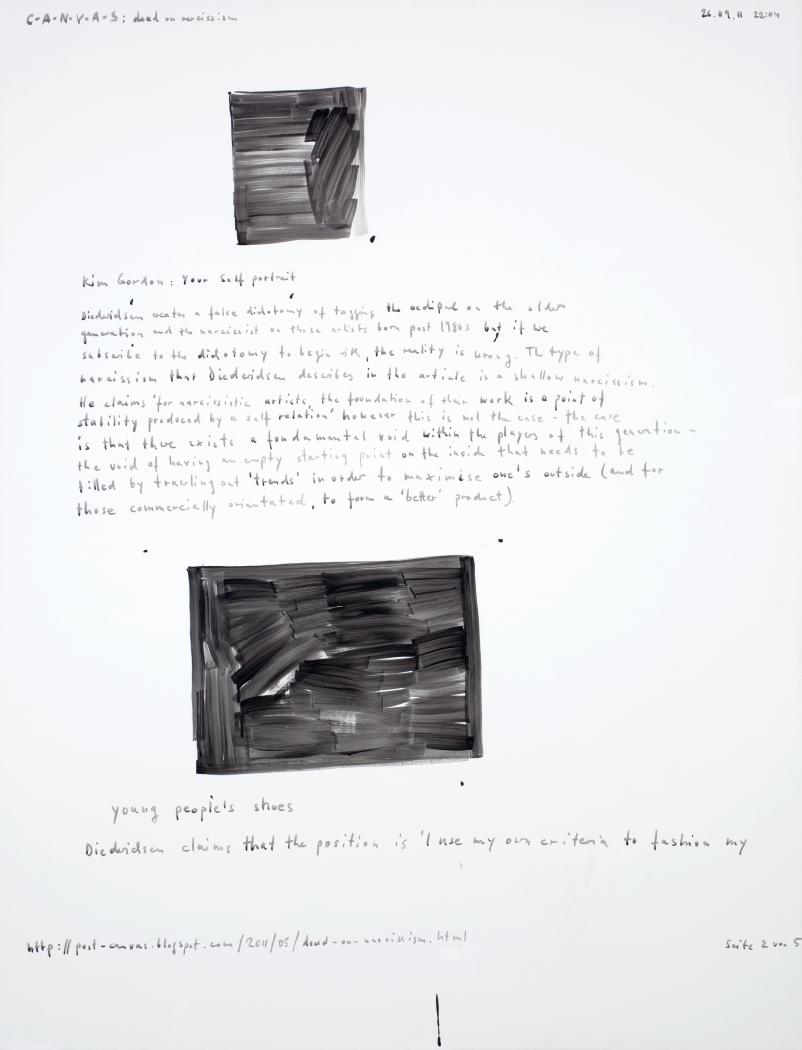 C-A-N-V-A-S: dead on narcissism
26.09.11 22:04
Kim Gordon: Your Self portrait
Diederidsen creates a false didotomy of tagging the oedipal on the older
generation and the narcissist on those artists born post 1980s but if we
subscribe to the didotomy to begin with, the reality is wrong. The type of
narcissism that Diederidsen describes in the article is a shallow narcissism.
He claims 'for narcissistic artists, the foundation of their work is a point of
stability produced by a self relation' however this is not the case - the case
is that there exists a fundamental void within the players of this generation -
the void of having an empty starting point on the inside that needs to be
filled by trawling out 'trends' in order to maximise one's outside (and for
those commercially orientated, to form a 'better' product).
young people's shoes
Diederidsen claims that the position is 'I use my own criteria to fashion my
http://post-canvas.blogspot.com/2011/05/dead-on-narcissism.html
Seite 2 von 5